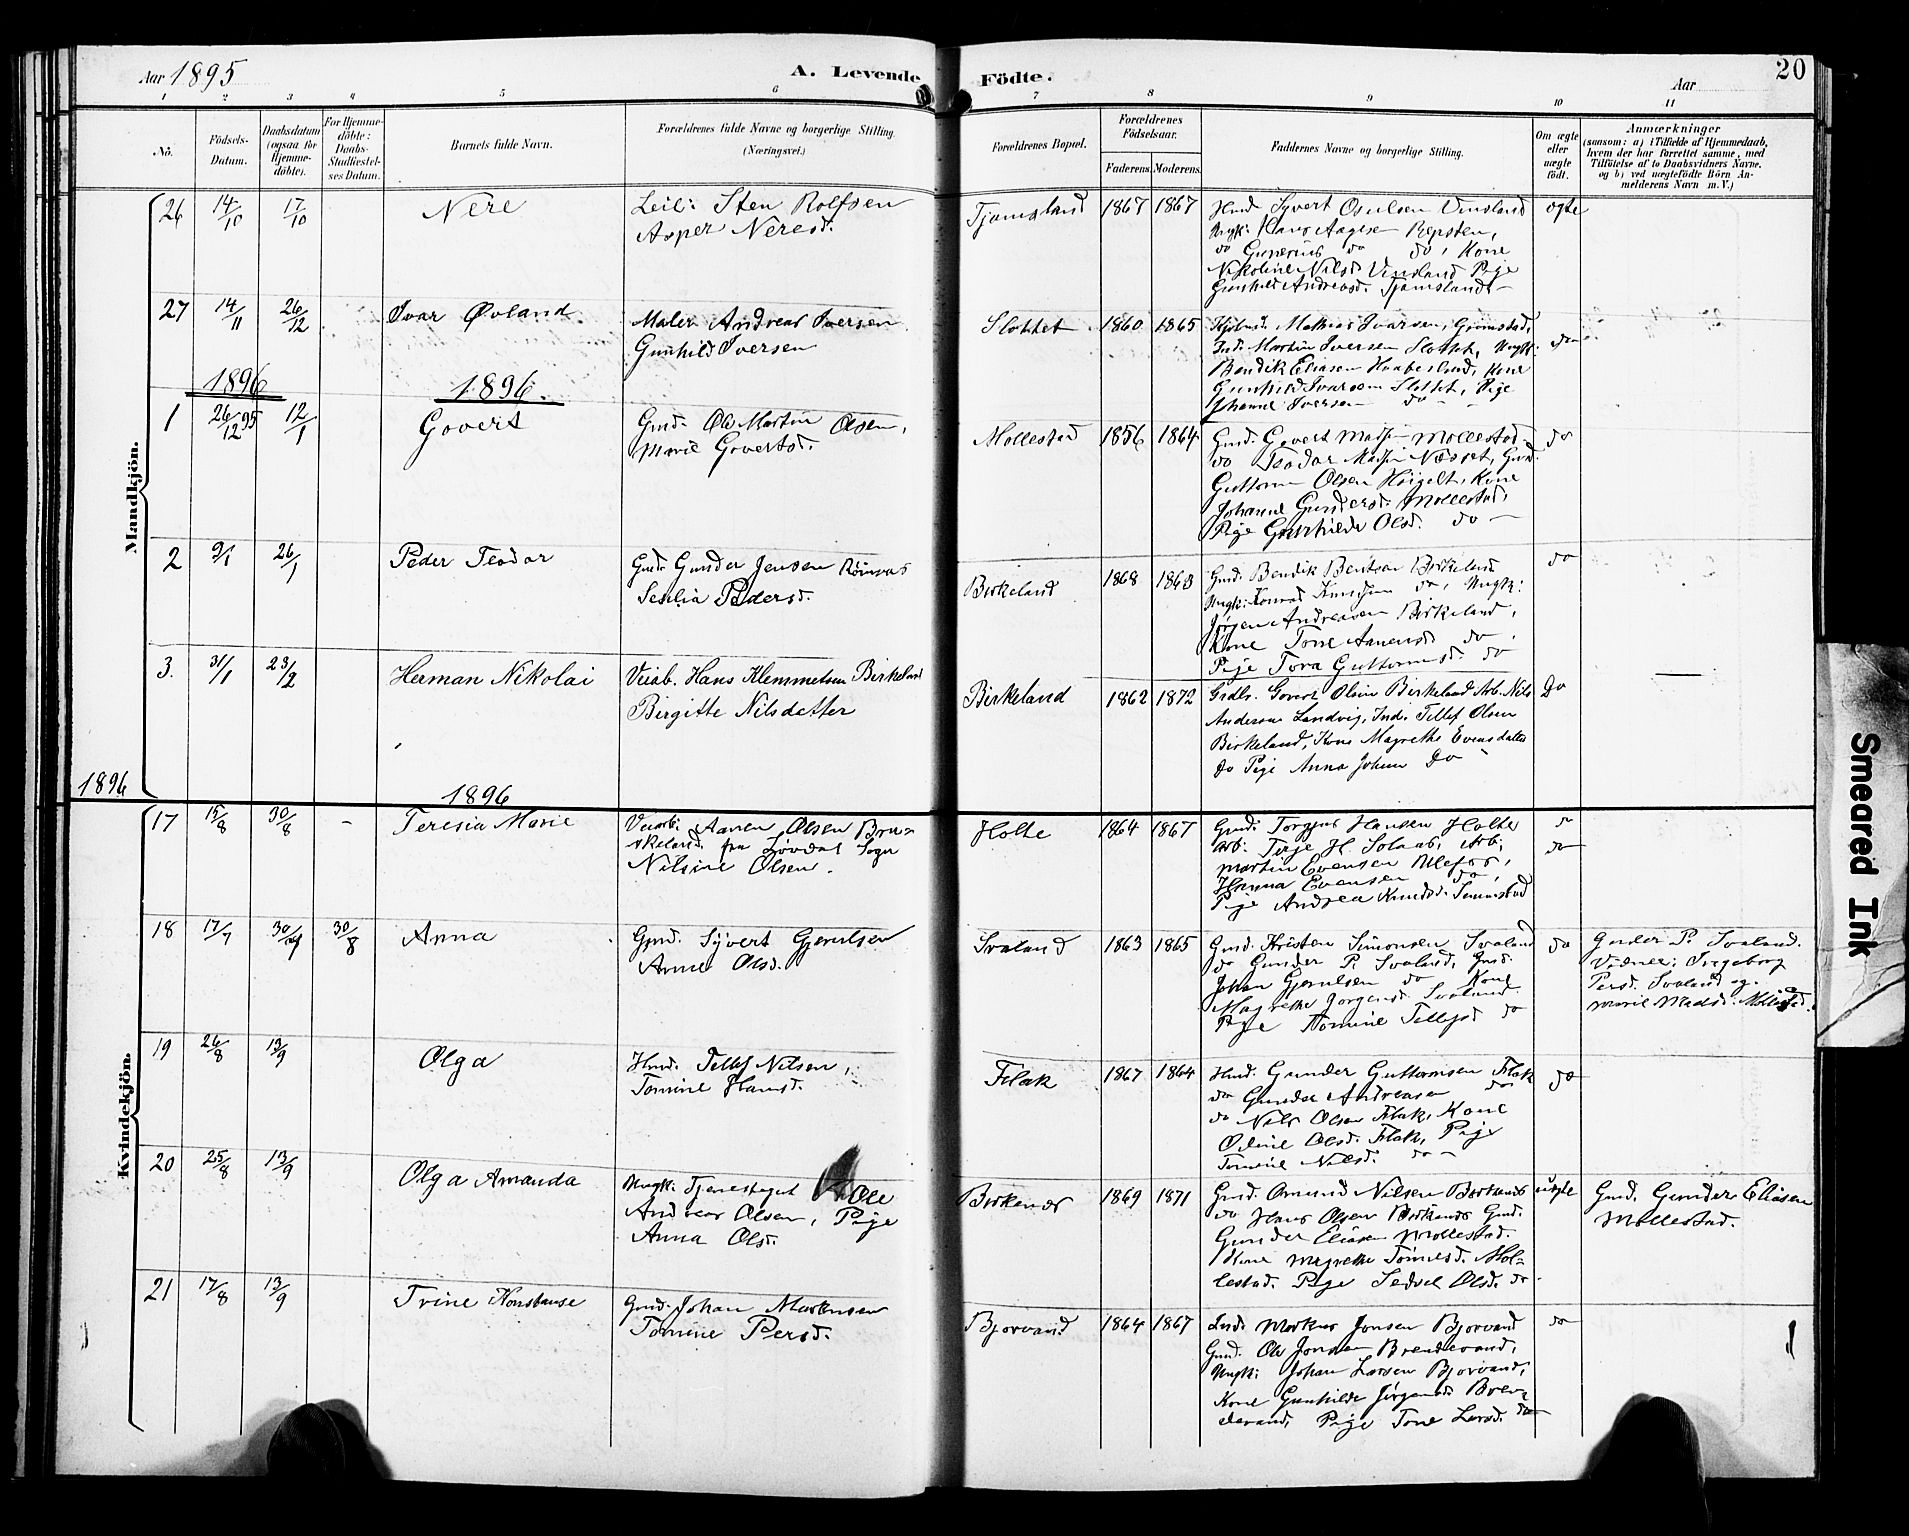 Aar 1895
A. Levende Födte.
Aar
20
1 2 3 4 5 6 7 8 9 10 11
No.
Födsels-Datum.
Daabsdatum (ogsaa for Hjemme-döbte).
For Hjemme-döbte: Daabs-Stadfæstel-ses Datum.
Barnets fulde Navn.
Forældrenes fulde Navne og borgerlige Stilling. (Næringsvei.)
Forældrenes Bopæl.
Forældrenes Födselsaar.
Faderens. Moderens.
Faddernes Navne og borgerlige Stilling.
Om ægte eller uægte födt.
Anmærkninger
(saasom: a) i Tilfælde af Hjemmedaab,
hvem der har forrettet samme, med
Tilföielse af to Daabsvidners Navne,
og b) ved uægtefödte Börn An-
melderens Navn m. V.)
Mandkjön.
26 14/10 17/10 Nere
Leil: Sten Rolfsen
Asper Neresd.
Tjomsland 1867 1867
Hmd Syvert Osulsen Vinsland
Ungk: Aagesen Repsten,
do Gunerius do do, Kone
Nikoline Nilsd. Vinsland Pige
Gunhild Andreasd. Tjomsland
ægte
27 14/11 26/12 Ivar Øvland
Maler Andreas Iversen
Gunhild Iversen
Slottet 1860 1865
Mathias Ivarsen, Grimstad,
Ind. Martin Iversen Slottet, Ungk:
Bendik Eliasen Haabesland, Kone
Gunhild Ivarsen Slottet, Pige
Iversen do
do
1896 1896.
1 26/12 95 12/1 Govert
Gmd. Ole Martin Olsen,
Marie Govertsd.
Mollestad 1856 1864
Gmd. Govert Mads. Mollestad
do Teodor Mads. Næsset, Gmd.
Guttorm Olsen Høigelt, Kone
Johanne Gundersd. Mollestad,
Pige Gunhilde Olsd. do
do
2 9/1 26/1 Peder Teodor
Gmd. Gunder Jensen
Pedersd.
Birkeland 1868 1863
Gmd. Bendik Bentsen Birkeland
Ungk: Konrad do, Ungk:
Jørgen Andreasen Birkeland,
Kone Tone Aanensd. do,
Pige Tora Guttormsd. do
do
3. 31/1 23/2 Herman Nikolai
Veiab. Hans Klemmetsen Birkeland
Birgitte Nilsdatter
Birkeland 1862 1872
Govert Olsen Birkeland Arb. Nils
Andersen Landvig, Ind. Tellef Olsen
Birkeland, Kone Magrethe Evensdatter
do Pige Anna Johnsen do
Do
1896 1896
Kvindekjön.
17 15/8 30/8 Teresia Marie
Veiarb: Aanen Olsen
fra Løvdal Sogn
Nilsine Olsen.
Holte 1864 1867
Gmd. Torgjus Hansen Holte
Arb. Terje H. Solaas, Arb.
Martin Evensen Ulefos,
Hanna Evensen do,
Pige Andrea Knudsd.
do
do
18 17/7 30/8 Anna
Gmd. Syvert Gjerulsen
Anne Olsd.
Svaland 1863 1865
Gmd. Kristen Simonsen Svaland
do Gunder P. Svaland, Gmd.
Johan Gjerulsen do Kone
Magrethe Jørgensd. Svaland
Pige Tomine Tellefsd. do
do
Gunder P. Svaland.
Vidner: Ingeborg
Persd. Svaland og
Marie Madsd. Mollestad.
19 26/8 13/9 Olga
Hmd. Tellef Nilsen,
Tomine Hansd.
Flak 1867 1864
Hmd. Gunder Guttormsen Flak
do Gunder Andreasen do
do Nils Olsen Flak, Kone
Olsd. Flak, Pige
Tomine Nilsd. do
do
20 25/8 13/9 Olga Amanda
Ungk: Ole
Andreas Olsen, Pige
Anna Olsd.
Birkenes 1869 1871
Gmd. Omund Nilsen Birkenes
do Hans Olsen Birkenes Gmd.
Gunder Eliasen Mollestad.
Kone Magrethe Tomesd. Mol-
lestad. Pige Olsd. do.
uægte
Gmd. Gunder Eliasen
Mollestad.
21 17/8 13/9 Trine Konstanse
Gmd. Johan Mortensen
Tomine Persd.
Bjorvand 1864 1867
Markus Jonsen Bjorvand
Gmd. Ole Jonsen Brendevand,
Ungk: Johan Larsen Bjorvand,
Kone Gunhilde Jørgensd. Bren-
devand, Pige Tone Larsd. do
do
Smeared Ink